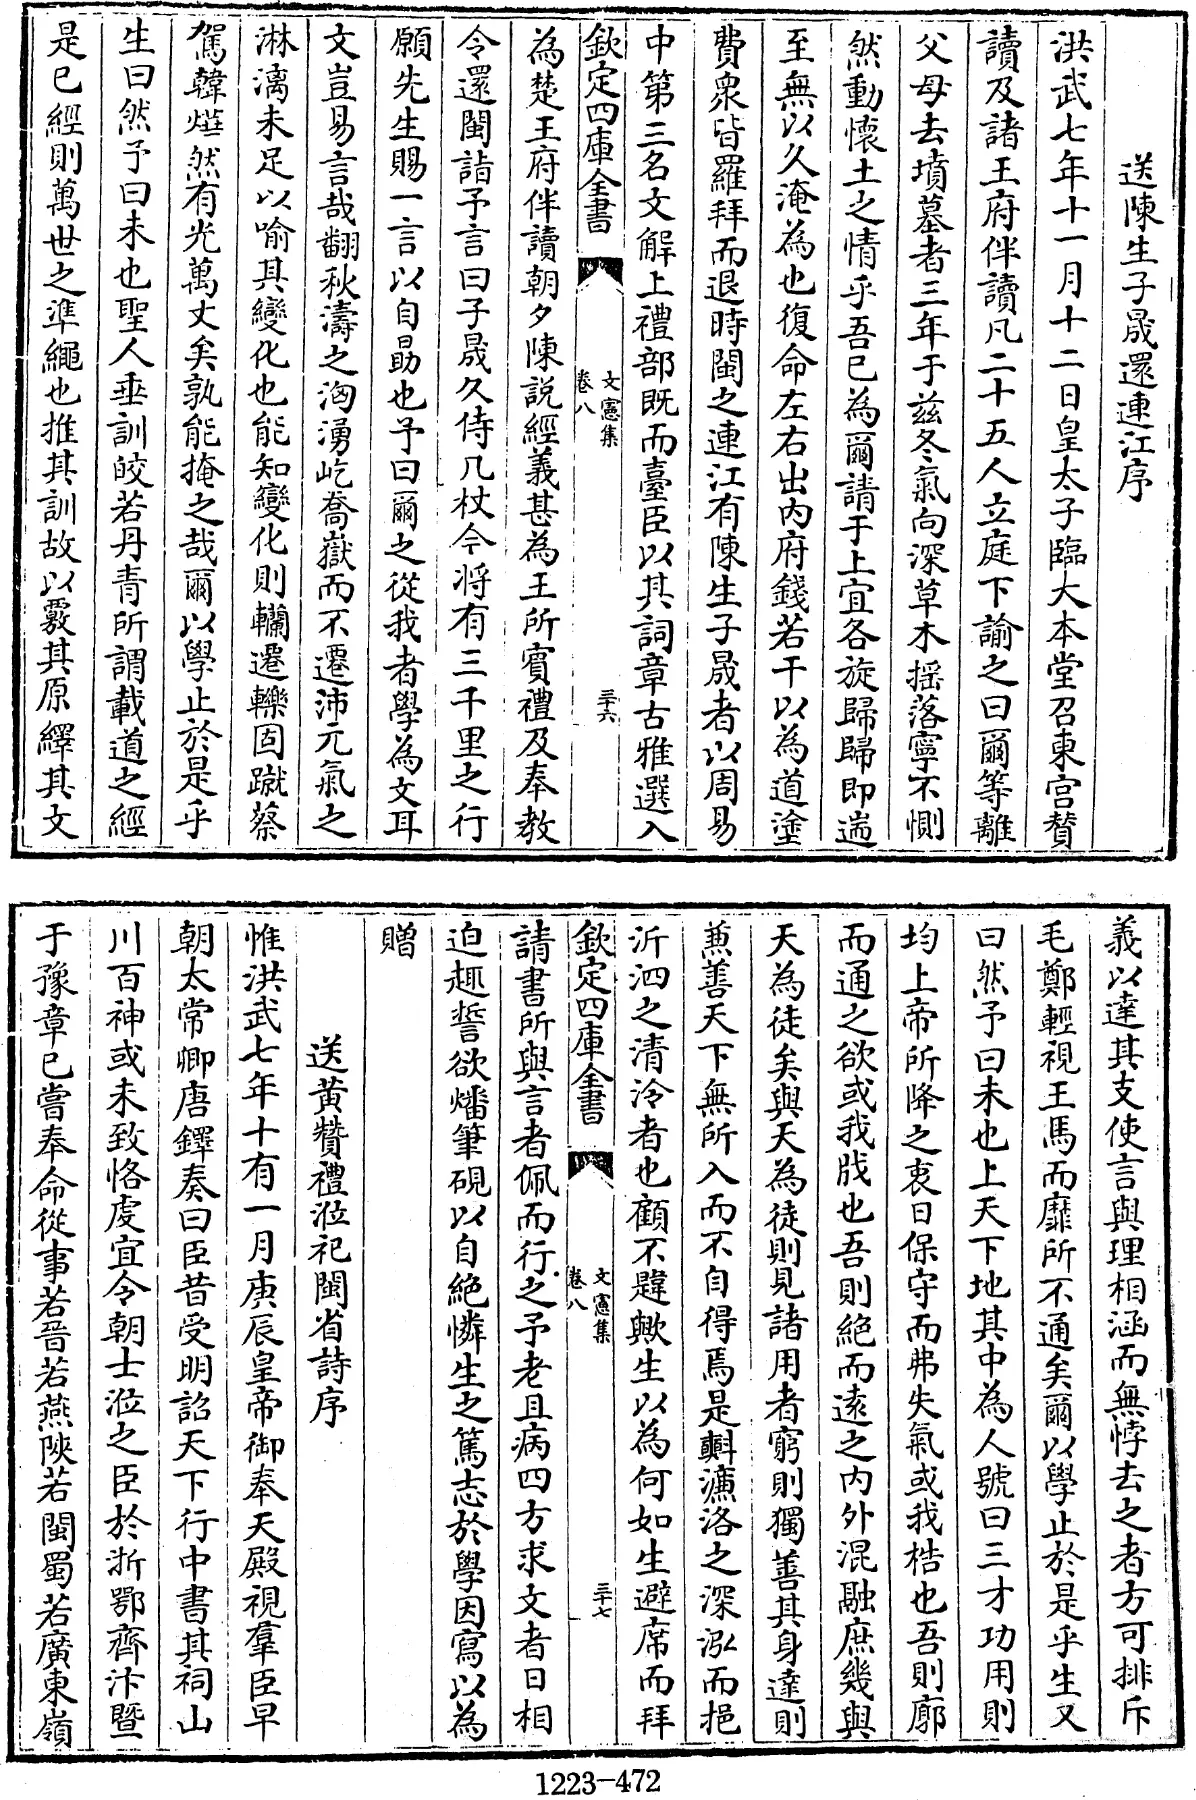 送陳生子晟還連江序
洪武七年十一月十二日皇太子臨大本堂召東宫贊
讀及諸王府伴讀凡二十五人立庭下諭之曰爾等離
父母去墳墓者三年于兹冬氣向深草木揺落寧不惻
然動懷土之情乎吾已為爾請于上宜各旋歸歸即遄
至無以久淹為也復命左右出内府錢若干以為道塗
費衆皆羅拜而退時閩之連江有陳生子晟者以周易
中第三名文解上禮部既而臺臣以其詞章古雅選入
欽定四庫全書
文憲集
卷八
三十六
為楚王府伴讀朝夕陳説經義甚為王所賓禮及奉教
令還閩詣予言曰子晟久侍几杖今将有三千里之行
願先生賜一言以自勗也予曰爾之從我者學為文耳
文豈易言哉翻秋濤之洶湧屹喬嶽而不遷沛元氣之
淋漓未足以喻其變化也能知變化則轥遷轢固蹴蔡
駕韓燁然有光萬丈矣孰能掩之哉爾以學止於是乎
生曰然予曰未也聖人垂訓皎若丹青所謂載道之經
是已經則萬世之準繩也推其訓故以覈其原繹其文
義以達其支使言與理相涵而無悖去之者方可排斥
毛鄭輕視王馬而靡所不通矣爾以學止於是乎生又
曰然予曰未也上天下地其中為人號曰三才功用則
均上帝所降之衷日保守而弗失氣或我梏也吾則廓
而通之欲或我戕也吾則絶而遠之内外混融庶幾與
天為徒矣與天為徒則見諸用者窮則獨善其身達則
兼善天下無所入而不自得焉是㪺濂洛之深泓而挹
沂泗之清泠者也顧不韙歟生以為何如生避席而拜
欽定四庫全書
文憲集
卷八
三十七
請書所與言者佩而行之予老且病四方求文者日相
迫趣誓欲燔筆硯以自絶憐生之篤志於學因寫以為
贈
送黄贊禮涖祀閩省詩序
惟洪武七年十有一月庚辰皇帝御奉天殿視羣臣早
朝太常卿唐鐸奏曰臣昔受明詔天下行中書其祠山
川百神或未致恪虔宜令朝士涖之臣於浙鄂齊汴暨
于豫章已嘗奉命從事若晉若燕陜若閩蜀若廣東嶺
1223-472